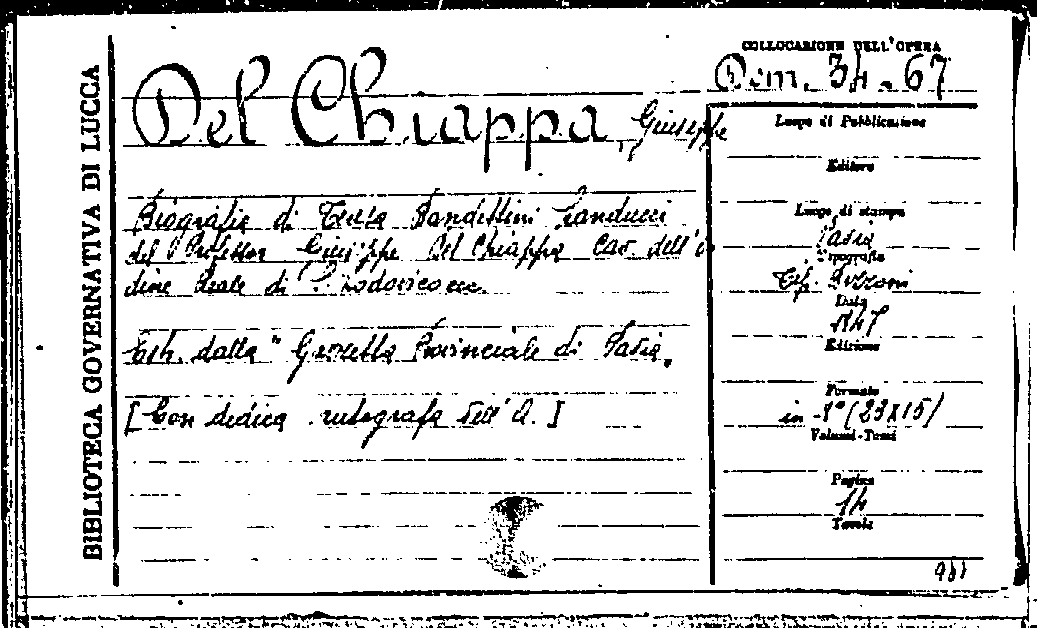 BIBLIOTECA GOVERNATIVA DI LUCCA
COLLOCAZIONE DELL'OPERA
34.67
Del Chiappa, Giuseppe
Biografia di Teresa Bandettini Landucci
del Professor Giuseppe Del Chiappa Cav. dell'or
dine Reale di S. Lodovico ecc.
Estr. dalla "Gazzetta Provinciale di Pavia"
[Con dedica autografa dell'A.]
Luogo di Pubblicazione
Editore
Luogo di stampa
Pavia
Tipografia
Tip. Bizzoni
Data
1847
Edizione
Formato
in-8° (23x15)
Volumi-Tomi
Pagine
14
Tavole